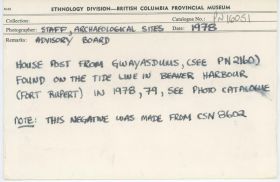 ETHNOLOGY DIVISION—BRITISH COLUMBIA PROVINCIAL MUSEUM
Collection: Catalogue No.: PN 16051
Photographer: STAFF, ARCHAEOLOGICAL SITES Date: 1978
Remarks: ADVISORY BOARD
HOUSE POST FROM GWAYASDUMS, (SEE PN 2160)
FOUND ON THE TIDE LINE IN BEAVER HARBOUR
(FORT RUPERT) IN 1978, 79, SEE PHOTO CATALOGUE
NOTE: THIS NEGATIVE WAS MADE FROM CSN 8602